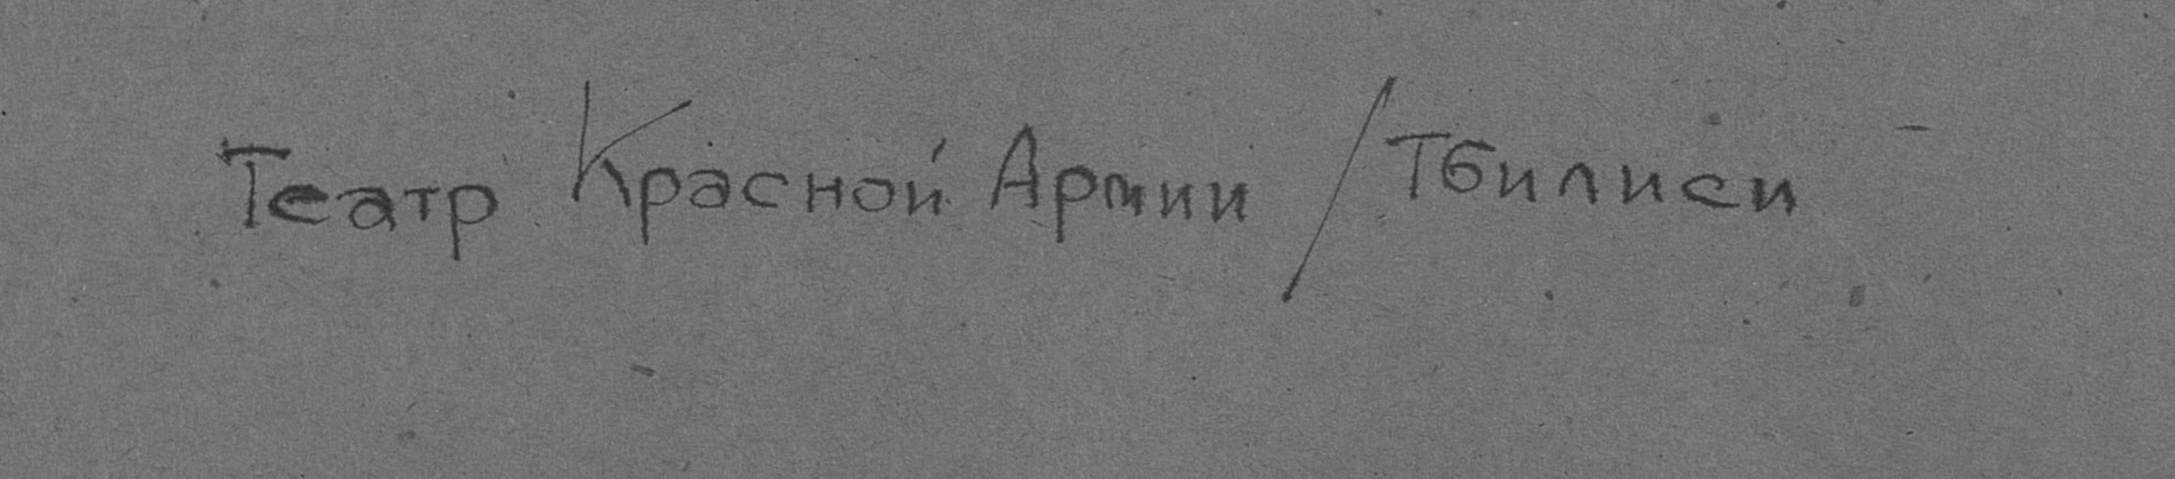 Театр Красной Армии / Тбилиси